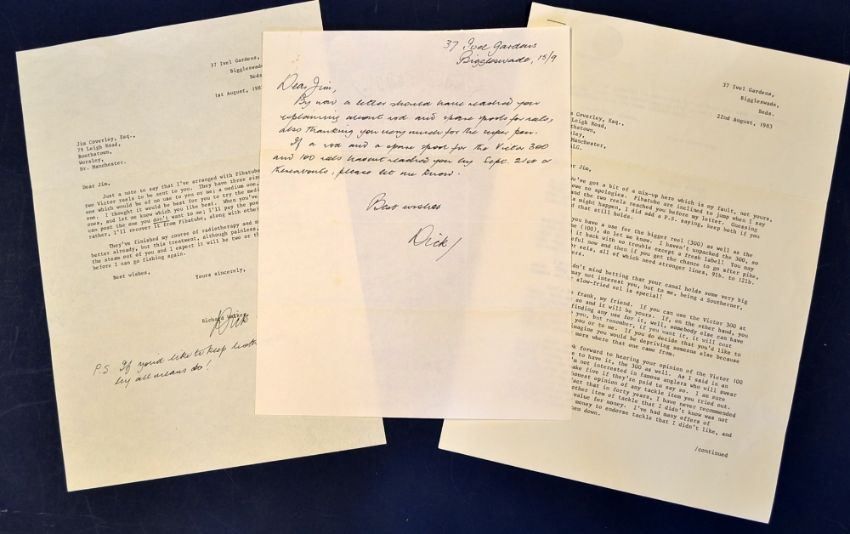 37 Ivel Gardens,
Biggleswade,
Beds.
1st August, 1983
Jim Coverley, Esq.,
79 Leigh Road,
Boothstown,
Worsley,
Nr. Manchester.
Dear Jim,
Just a note to say that I've arranged with Pikatube
two Victor reels to be sent to you. They have three
one which would be of no use to you or me; a medium one,
one. I thought it would be best for you to try the
one, and let me know which you like best. When you've
can post the one you don't want to me; I'll pay the
rather, I'll recover it from Pikatube, along with
They've finished my course of radiotherapy and
better already, but this treatment, although painless,
the steam out of you and I expect it will be two or
before I can go fishing again.
Best wishes,
Yours sincerely,
Richard
Dick
P.S. If you'd like to keep both
by all means do!
37 Ivel Gardens
Biggleswade, 15/9
Dear Jim,
By now a letter should have reached you
explaining about rod and spare spools for reels,
also thanking you very much for the super pen.
If a rod and a spare spool for the Victor 300
and 100 reels haven't reached you by Sept. 21st or
thereabouts, please let me know.
Best wishes
Dick
37 Ivel Gardens,
Biggleswade,
Beds.
22nd August, 1983
Coverley, Esq.,
Leigh Road,
Manchester,
Jim,
got a bit of a mix-up here which is my fault, not yours,
no apologies. Pikatube are inclined to jump when I say
and the two reels reached you before my letter. Guessing
might happen, I did add a P.S. saying, keep both if you
that still holds.
have a use for the bigger reel (300) as well as the
(100), do let me know. I haven't unpacked the 300, so
it back with no trouble except a fresh label! You may
useful now and then if you get the chance to go after pike,
or eels, all of which need stronger lines, 9lb. to 12lb.
don't mind betting that your canal holds some very big
may not interest you, but to me, being a Southerner,
slow-fried eel is special!
frank, my friend. If you can use the Victor 300 at
so and it will be yours. If, on the other hand, you
finding any use for it, well, somebody else can have
you, but remember, if you want it, it will cost
you or to me. If you do decide that you'd like to
imagine you would be depriving someone else because
more where that one came from.
look forward to hearing your opinion of the Victor 100
to have it, the 300 as well. As I said in an
not interested in famous anglers who will swear
make five if they're paid to say so. I am sure
honest opinion of any tackle item you tried out.
fact that in forty years, I have never recommended
other item of tackle that I didn't know was not
value for money. I've had many offers of
money to endorse tackle that I didn't like, and
down.
/continued